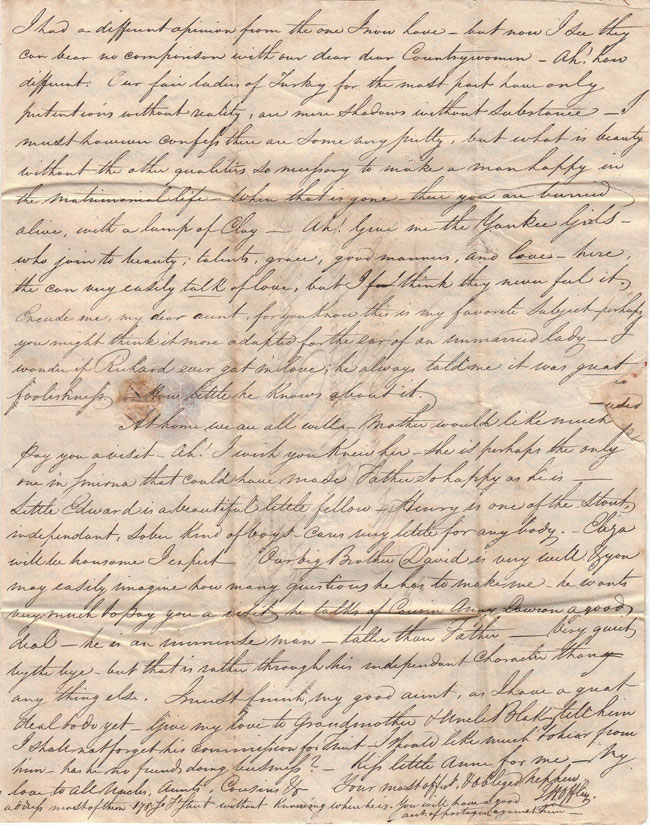 I had a different opinion from the one I now have – but now I see they
can bear no comparison with our dear dear Countrywomen – Ah! how
different. Our fair ladies of Turky for the most part have only
pretentions without reality, are mere shadows without substance – I
must however confess there are some very pretty, but what is beauty
without the other qualities so necessary to make a man happy in
the matrimonial life – When that is gone there you are burried
alive, with a lump of Clay – Ah! Give me the Yankee Girls –
who join to beauty, talents, grace, good manners, and love – here,
the can very easily talk of love, but I think they never feel it,
Excuse me, my dear aunt, for you know this is my favorite subject – perhaps
you might think it more adapted for the ear of an unmarried lady – I
wonder if Richard ever gat in love, he always told me it was great
foolishness – How little he knows about it.
At home we are all well – Mother would like much to
pay you a visit – Ah! I wish you knew her – She is perhaps the only
one in Smirna that could have made Father so happy as he is –
Little Edward is a beautiful little fellow – Henry is one of the stout,
independant, sober kind of boys – Cares very little for any body. – Eliza
will be hansome I expect – Our big Brother David is very well & you
may easily imagine how many questions he has to make me – he wants
very much to pay you a visit, he talks of Cousin Anny Dawson a good
deal – he is an immense man – taller than Father – Very quiet
by the bye – but that is rather through his independant Character than
any thing else. I must finish, my good aunt, as I have a great
deal to do yet – Give my love to Grandmother & Uncle Blak, tell him
I shall not forget his commission for fruit – I should like much to hear from
him – has he no friends doing business? – Kiss little Anne for me – My
love to all Uncles, Aunts, Cousins &c Your most affect. & obliged nephew
most of them without knowing where he is. You will have a good
of postages against him –